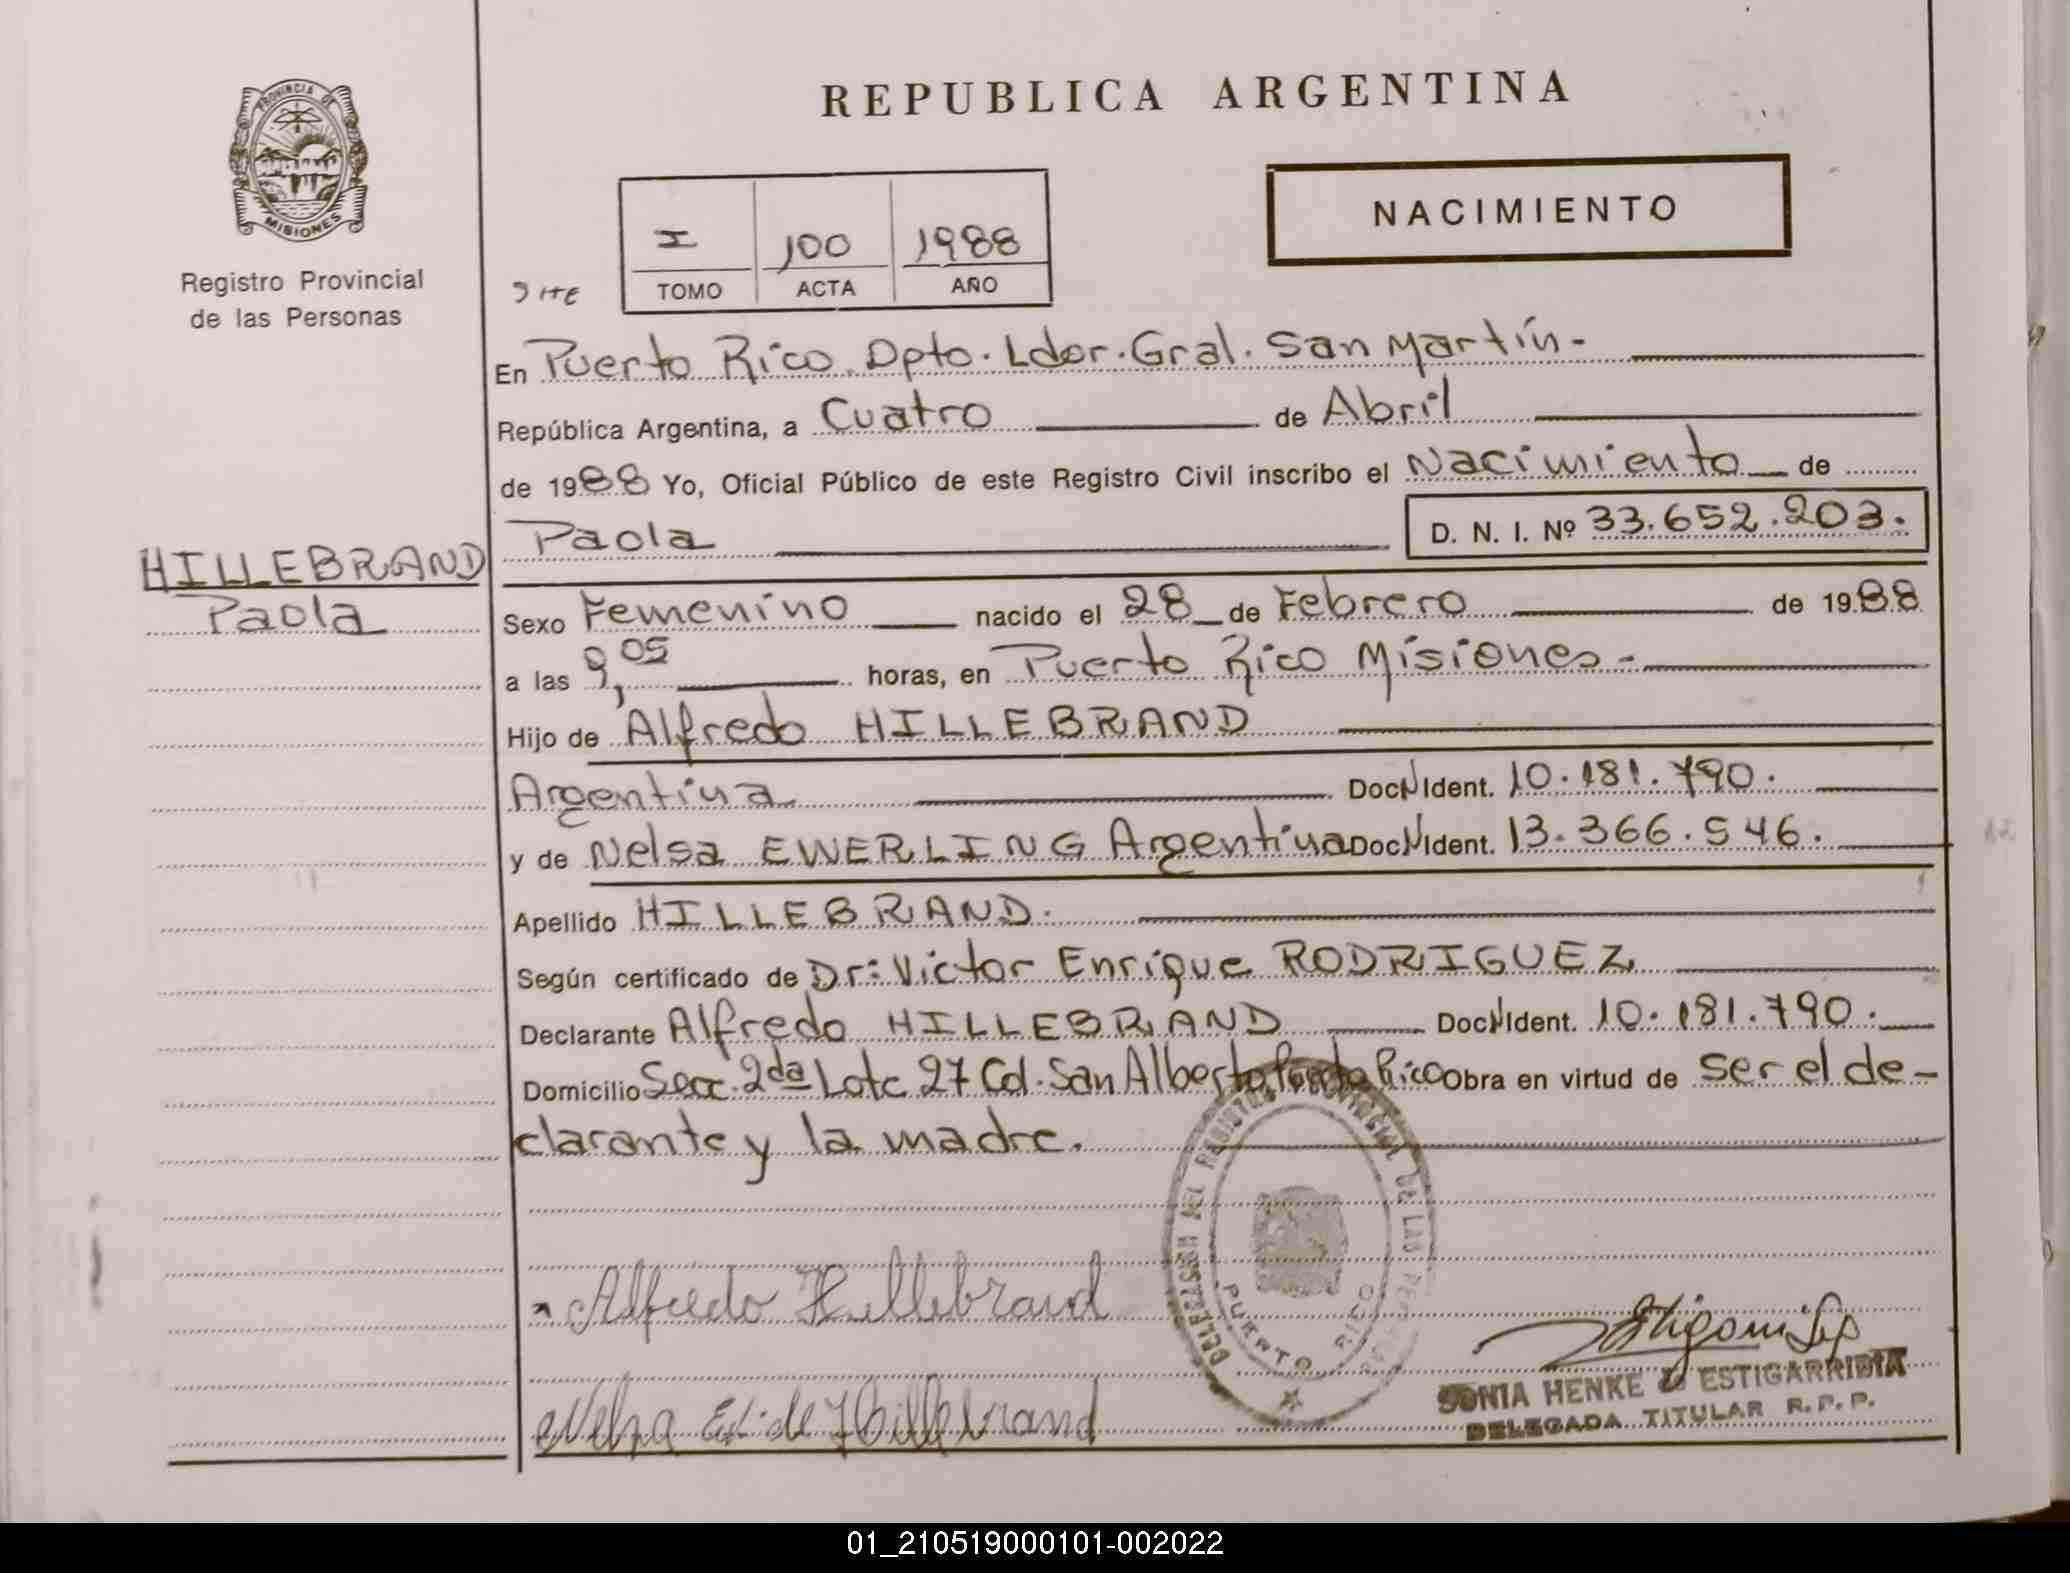 REPUBLICA ARGENTINA
PROVINCIA DE
MISIONES
Registro Provincial
de las Personas
NACIMIENTO
I 100 1988
TOMO ACTA AÑO
En Puerto Rico Dpto. Ldor. Gral. San Martín.-
República Argentina, a Cuatro de Abril
de 1988 Yo, Oficial Público de este Registro Civil inscribo el Nacimiento de
Paola D. N. I. Nº 33.652.203.
HILLEBRAND
Paola
Sexo Femenino nacido el 28 de Febrero de 1988
a las 9,05 horas, en Puerto Rico Misiones.-
Hijo de Alfredo HILLEBRAND
Argentina Doc N Ident. 10.181.790.
y de Nelsa EWERLING Argentina Doc N Ident. 13.366.546.
Apellido HILLEBRAND.
Según certificado de Dr: Victor Enrique RODRIGUEZ
Declarante Alfredo HILLEBRAND Doc N Ident. 10.181.790.
Domicilio Secc. 2da Lote 27 Col. San Alberto Puerto Rico Obra en virtud de ser el de-
clarante y la madre.
DELEGASION DEL REGISTRO PROVINCIAL DE LAS PERSONAS
PUERTO RICO
Alfredo Hillebrand
Nelsa E. de Hillebrand
SONIA HENKE D ESTIGARRIBIA
DELEGADA TITULAR R.P.P.
01_210519000101-002022